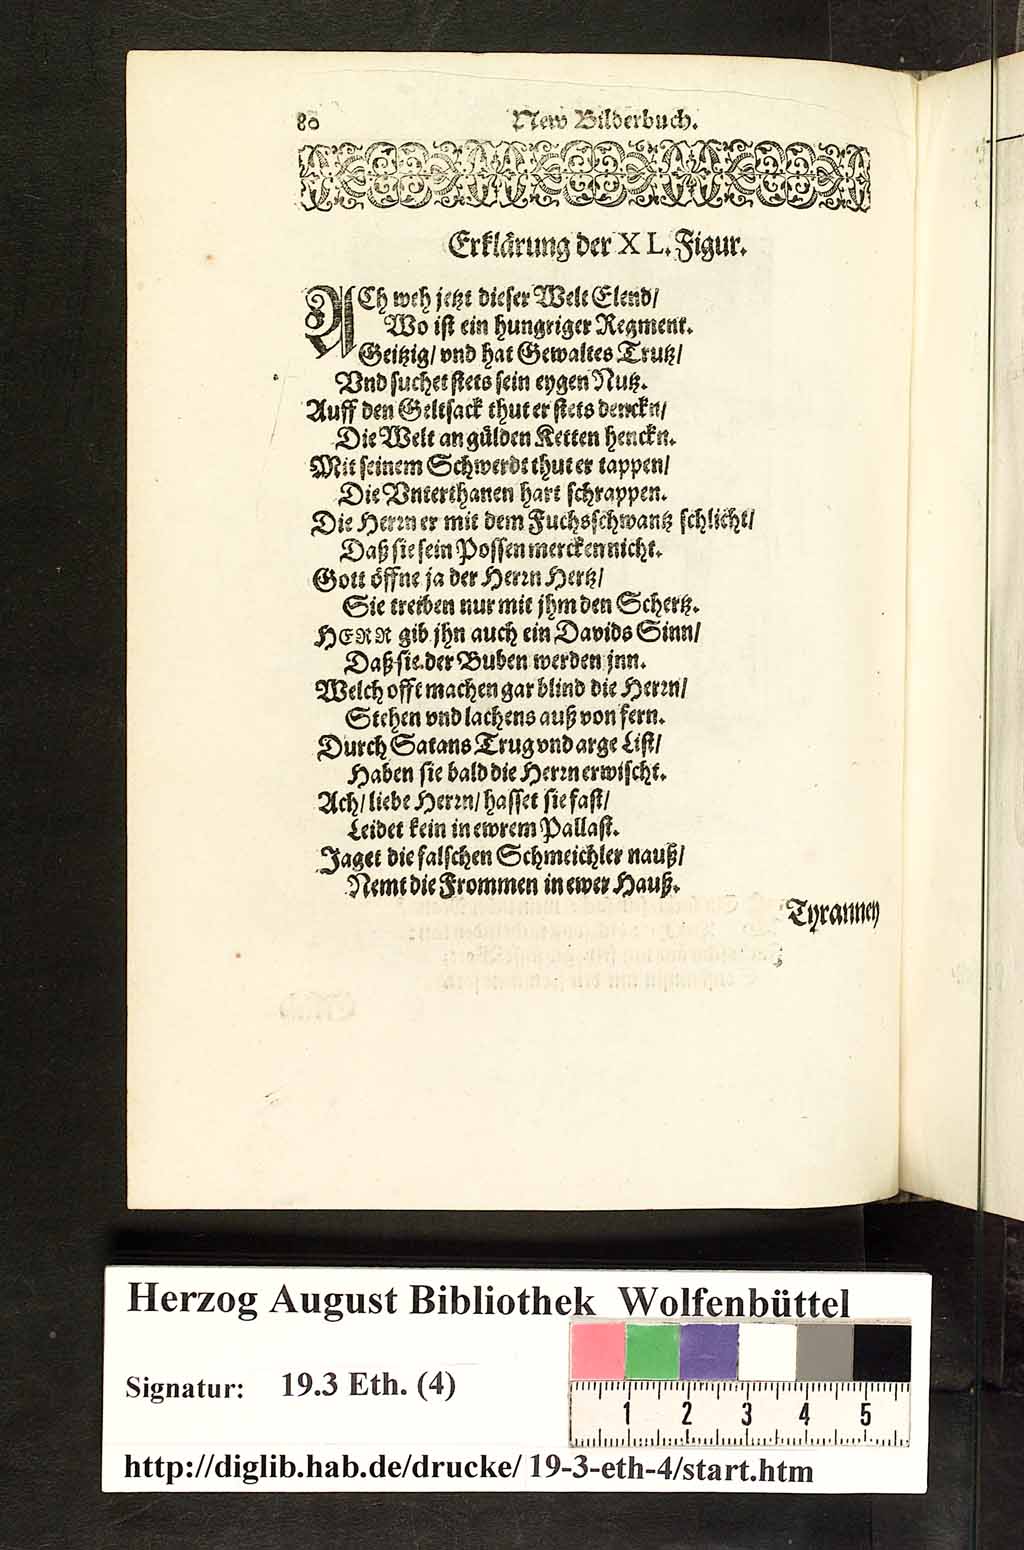 80 New Bilderbuch.
Erklärung der XL. Figur.
ACh weh jetzt dieser Welt Elend/
Wo ist ein hungriger Regment.
Geitzig/ vnd hat Gewaltes Trutz/
Vnd suchet stets sein eygen Nutz.
Auff den Geltsack thut er stets denckn/
Die Welt an gülden Ketten henckn.
Mit seinem Schwerdt thut er tappen/
Die Vnterthanen hart schrappen.
Die Herrn er mit dem Fuchsschwantz schlicht/
Daß sie sein Possen mercken nicht.
Gott öffne ja der Herrn Hertz/
Sie treiben nur mit jhm den Schertz.
HERR gib jhn auch ein Davids Sinn/
Daß sie der Buben werden jnn.
Welch offt machen gar blind die Herrn/
Stehen vnd lachens auß von fern.
Durch Satans Trug vnd arge List/
Haben sie bald die Herrn erwischt.
Ach/ liebe Herrn/ hasset sie fast/
Leidet kein in ewrem Pallast.
Jaget die falschen Schmeichler nauß/
Nemt die Frommen in ewer Hauß.
Tyranney
Herzog August Bibliothek Wolfenbüttel
Signatur: 19.3 Eth. (4)
1 2 3 4 5
http://diglib.hab.de/drucke/19-3-eth-4/start.htm